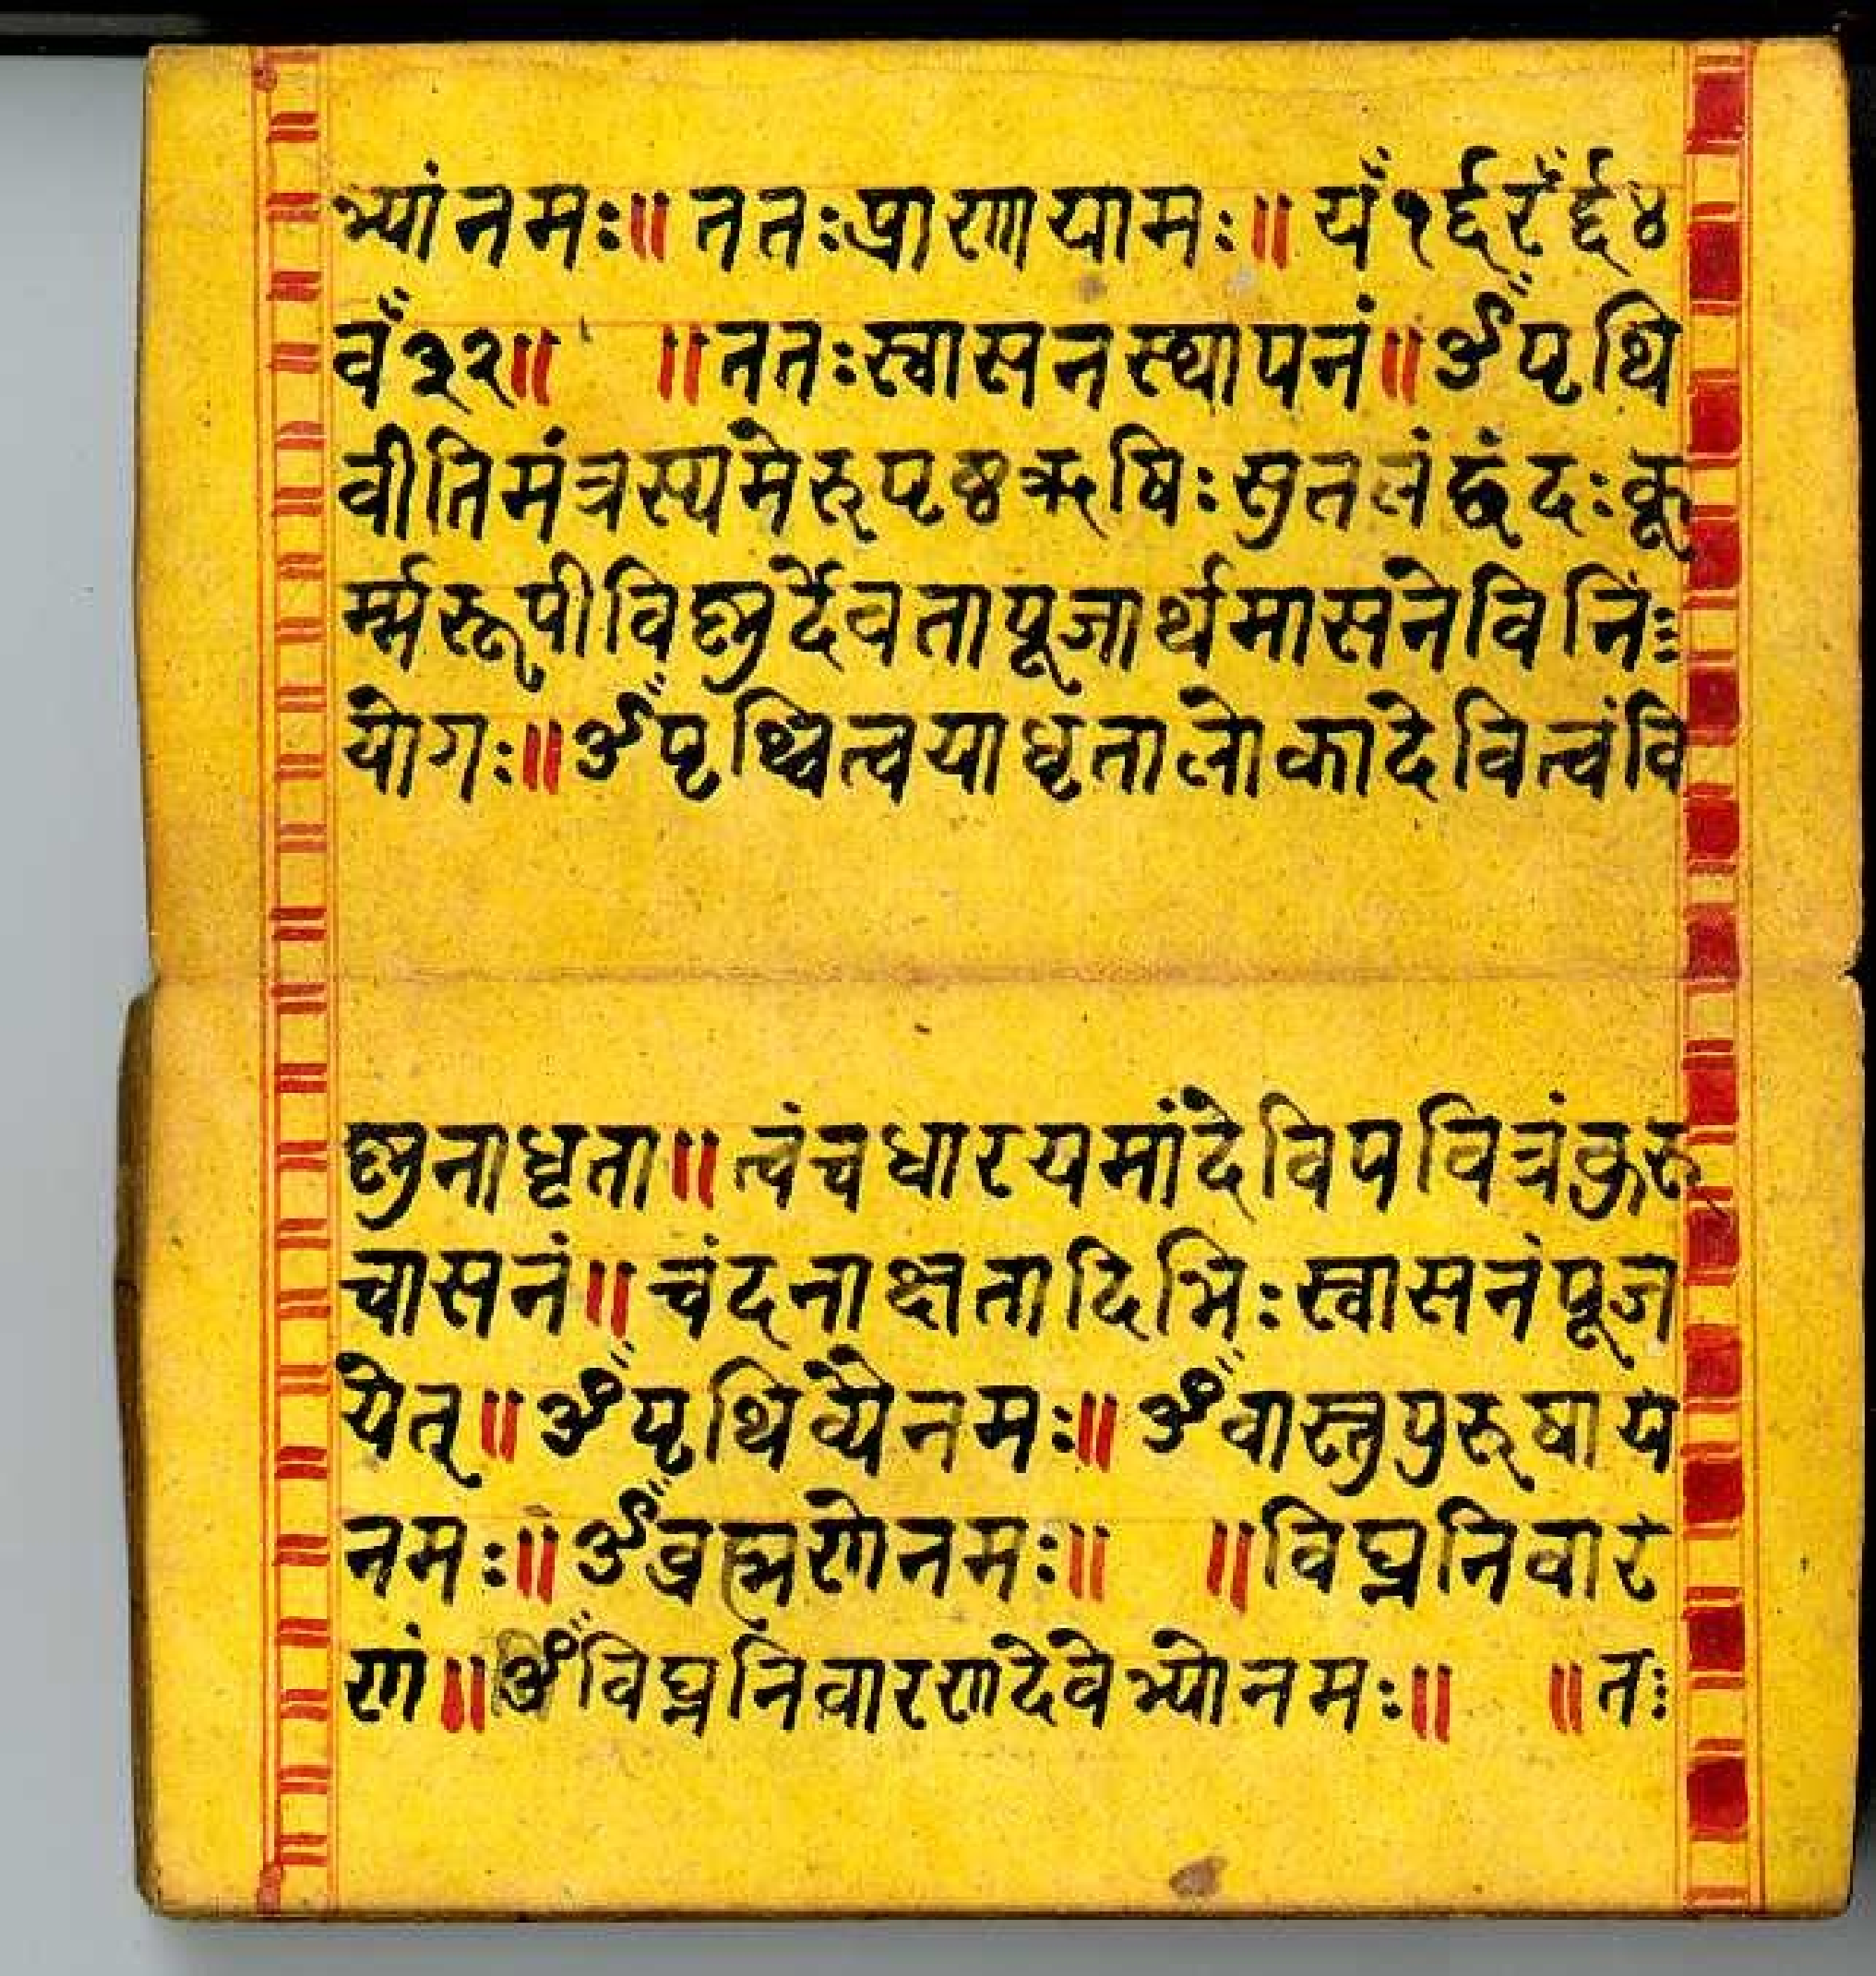 भ्यांनमः॥ ततःप्राणयामः॥ यँ१६रँ६४
वँ३२॥ ॥ततःस्वासनस्थापनं॥ॐपृथि
वीतिमंत्रस्यमेरुपृष्ठऋषिःसुतलंछंदःकू
र्म्मरूपीविष्णुर्देवतापूजार्थमासनेविनिः
योगः॥ॐपृथ्वित्वयाधृतालोकादेवित्वंवि
ष्णुनाधृता॥त्वंचधारयमांदेविपवित्रंकुरु
चासनं॥चंदनाक्षतादिभिःस्वासनंपूज
येत्॥ॐपृथिव्यैनमः॥ॐवास्तुपुरूषाय
नमः॥ॐब्रह्मणेनमः॥ ॥विघ्ननिवार
णं॥ॐविघ्ननिवारणदेवेभ्योनमः॥ ॥तः